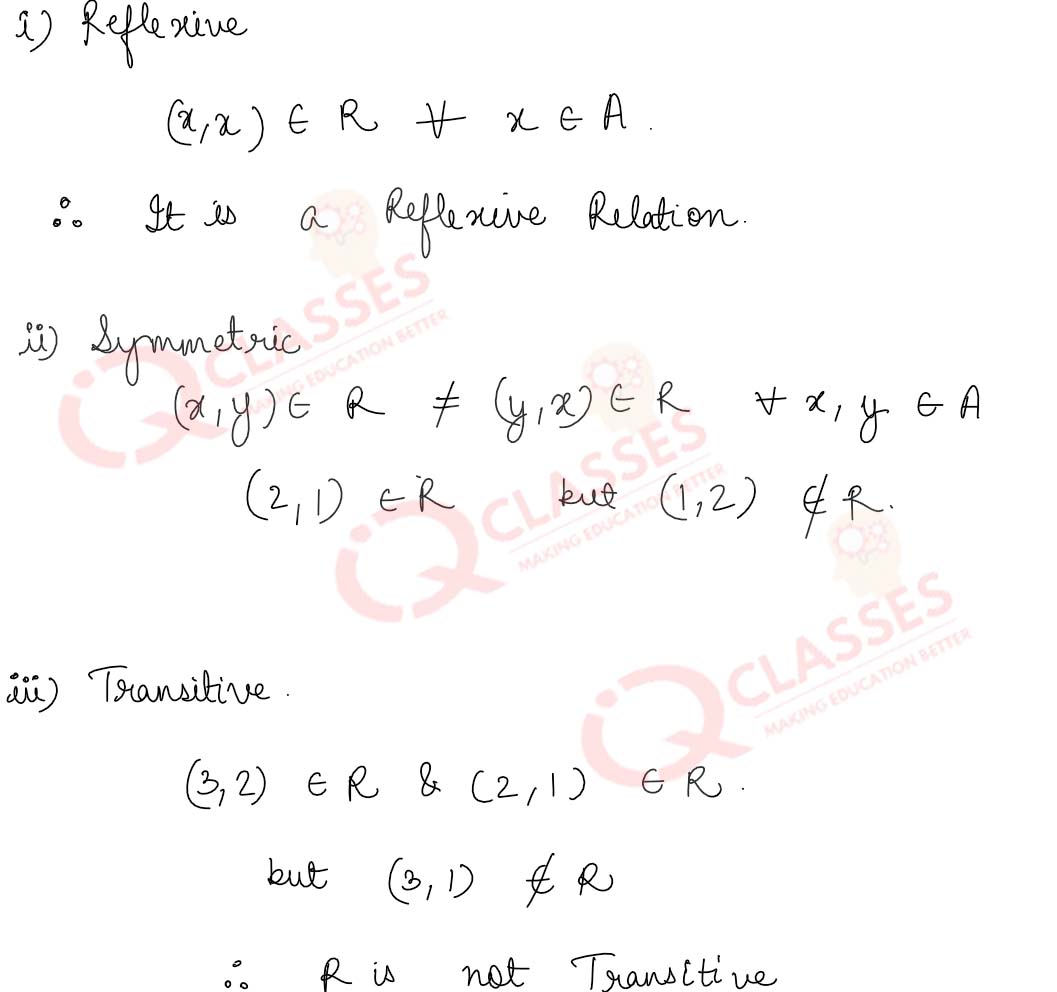 i) Reflexive
(x,x) ∈ R ∀ x ∈ A.
∴ It is a Reflexive Relation.
ii) Symmetric
(x,y) ∈ R ≠ (y,x) ∈ R ∀ x, y ∈ A
(2,1) ∈ R but (1,2) ∉ R.
iii) Transitive.
(3,2) ∈ R & (2,1) ∈ R.
but (3,1) ∉ R
∴ R is not Transitive
IQ CLASSES
MAKING EDUCATION BETTER
IQ CLASSES
MAKING EDUCATION BETTER
IQ CLASSES
MAKING EDUCATION BETTER